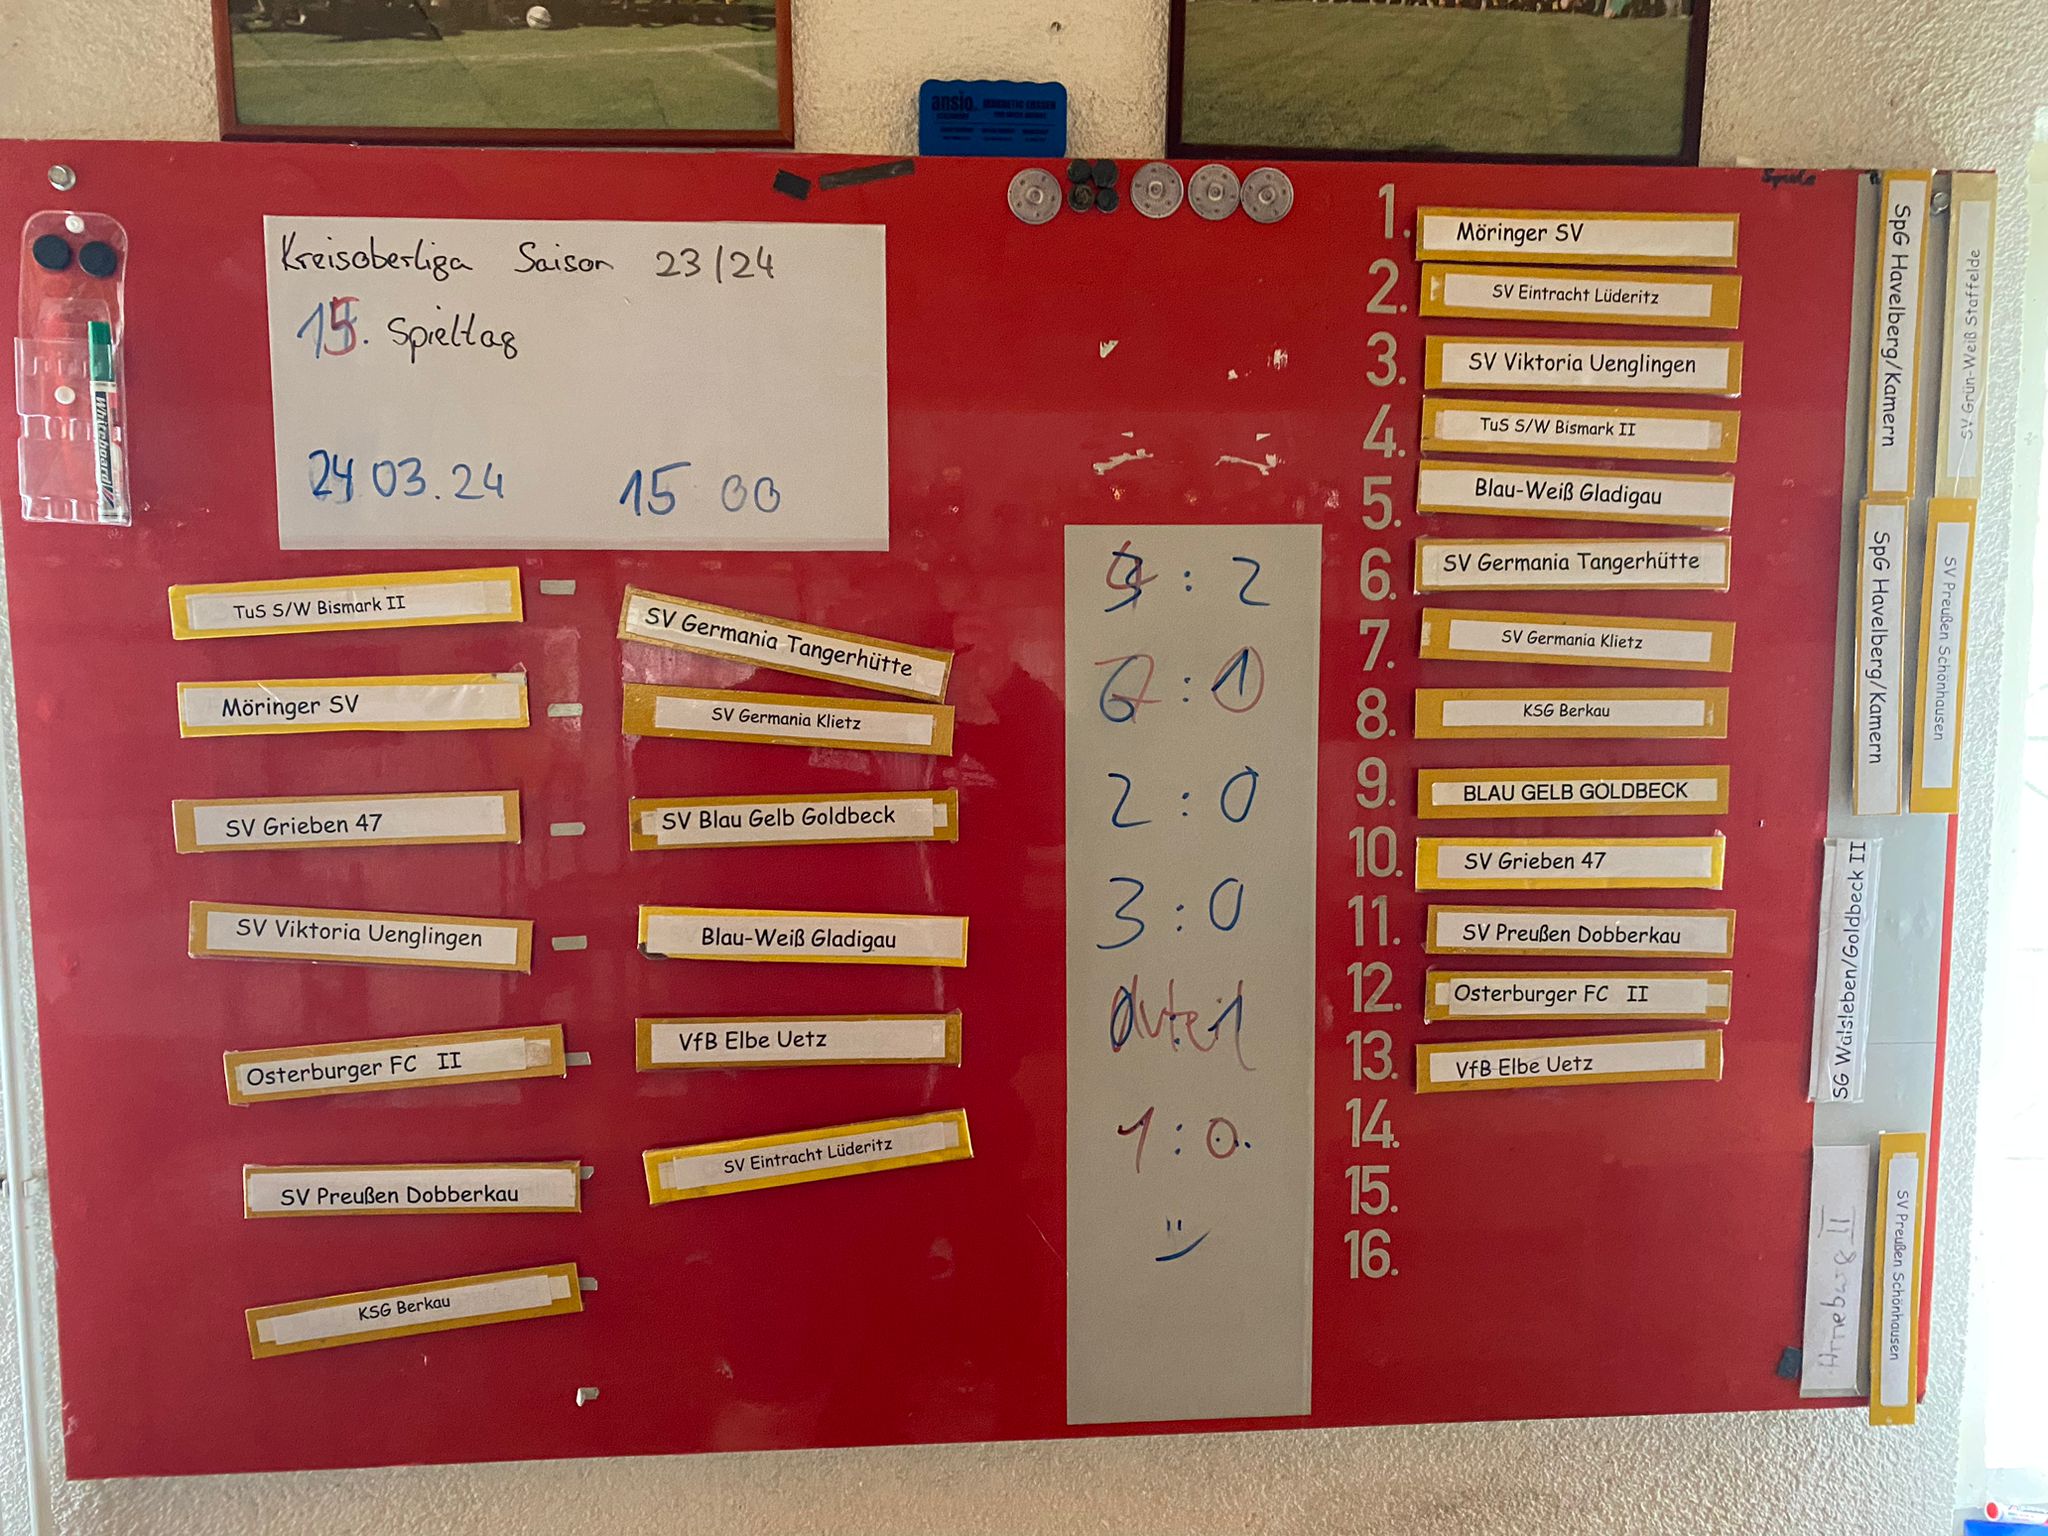 ansio
Kreisoberliga Saison 23/24
15. Spieltag
24 03. 24 15 00
TuS S/W Bismark II - SV Germania Tangerhütte
Möringer SV - SV Germania Klietz
SV Grieben 47 - SV Blau Gelb Goldbeck
SV Viktoria Uenglingen - Blau-Weiß Gladigau
Osterburger FC II - VfB Elbe Uetz
SV Preußen Dobberkau - SV Eintracht Lüderitz
KSG Berkau -
: 2
:
2 : 0
3 : 0
1 : 0
1. Möringer SV
2. SV Eintracht Lüderitz
3. SV Viktoria Uenglingen
4. TuS S/W Bismark II
5. Blau-Weiß Gladigau
6. SV Germania Tangerhütte
7. SV Germania Klietz
8. KSG Berkau
9. BLAU GELB GOLDBECK
10. SV Grieben 47
11. SV Preußen Dobberkau
12. Osterburger FC II
13. VfB Elbe Uetz
14.
15.
16.
SpG Havelberg/Kamern
SV Grün-Weiß Staffelde
SpG Havelberg/Kamern
SV Preußen Schönhausen
SG Walsleben/Goldbeck II
II
SV Preußen Schönhausen
Whiteboard